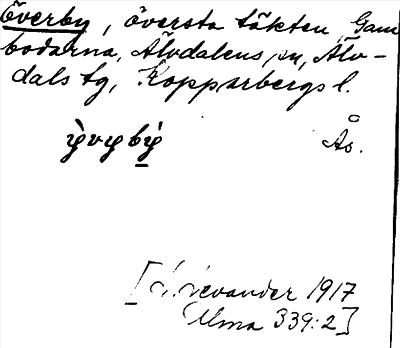 Överby, översta täkten, Gam
bodarna, Älvdalens sn, Älv-
dals tg, Kopparbergs l.
Ås.
[ Levander 1917
Ulma 339:2]